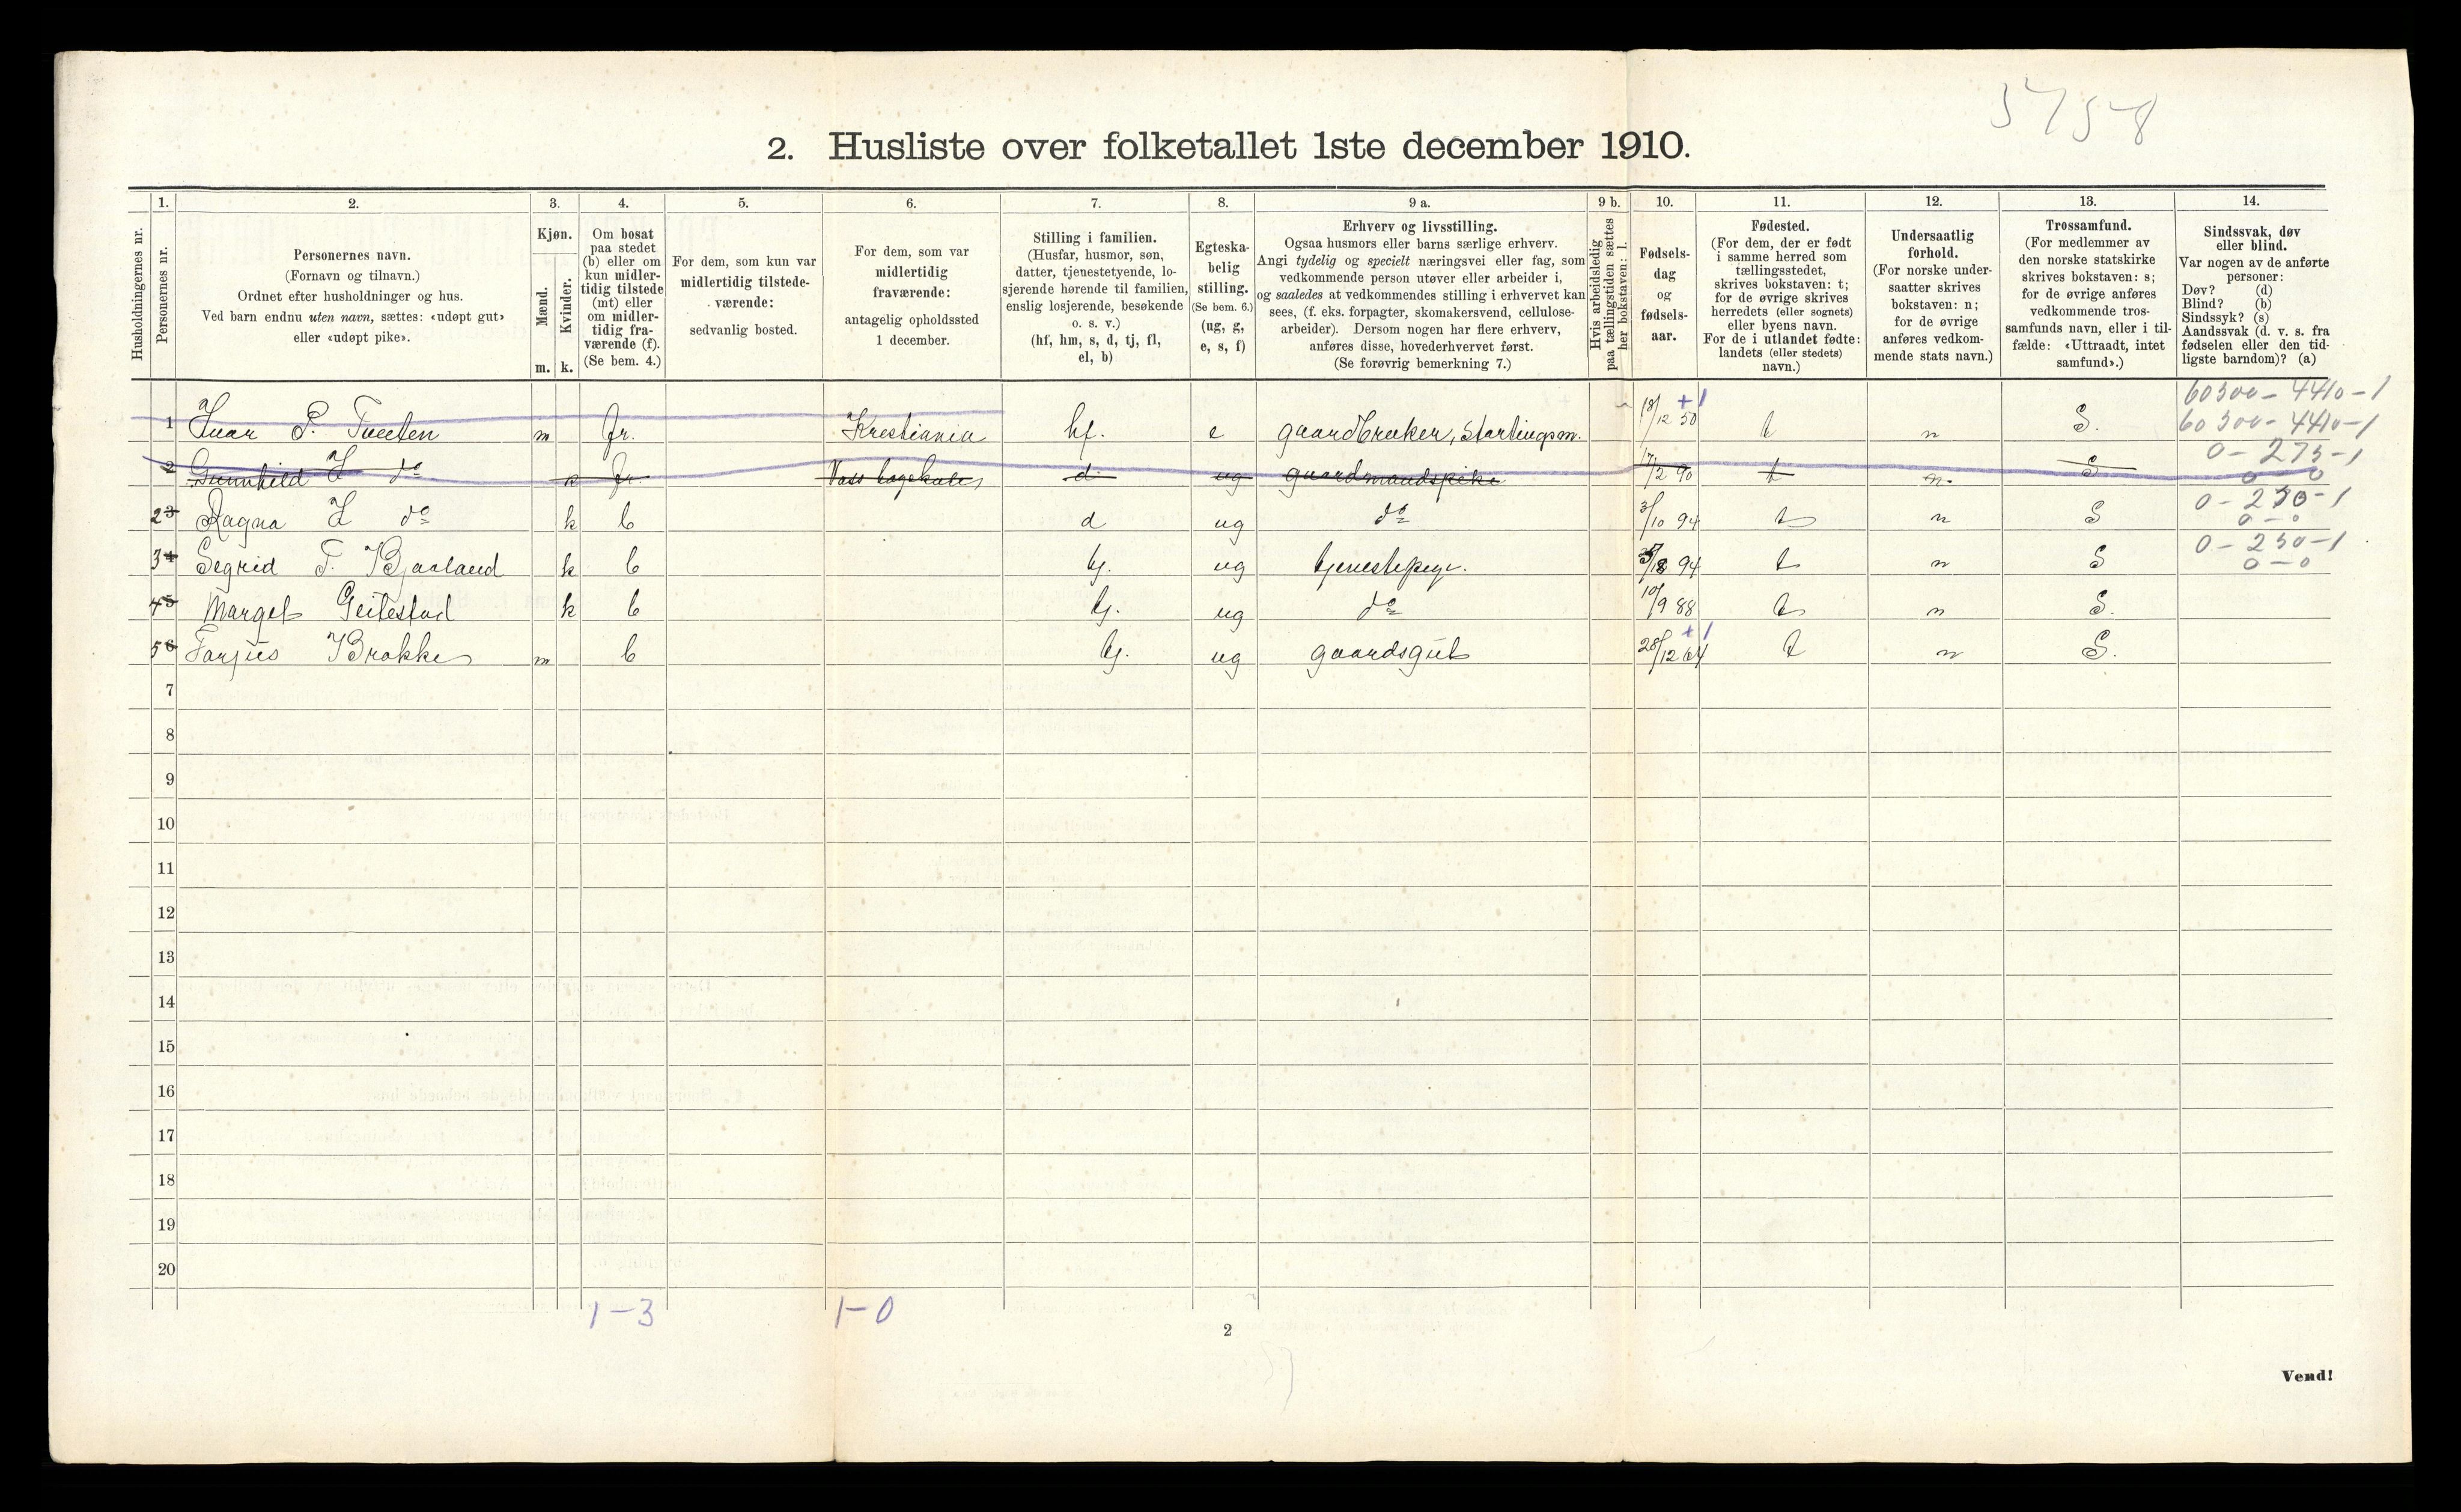 2. Husliste over folketallet 1ste december 1910.
1. 2. 3. 4. 5. 6. 7. 8. 9 a. 9 b. 10. 11. 12. 13. 14.
Husholdningernes nr.
Personernes nr.
Personernes navn.
(Fornavn og tilnavn.)
Ordnet efter husholdninger og hus.
Ved barn endnu uten navn, sættes: «udøpt gut»
eller «udøpt pike».
Kjøn.
Mænd.
Kvinder.
m. k.
Om bosat
paa stedet
(b) eller om
kun midler-
tidig tilstede
(mt) eller
om midler-
tidig fra-
værende (f).
(Se bem. 4.)
For dem, som kun var
midlertidig tilstede-
værende:
sedvanlig bosted.
For dem, som var
midlertidig
fraværende:
antagelig opholdssted
1 december.
Stilling i familien.
(Husfar, husmor, søn,
datter, tjenestetyende, lo-
sjerende hørende til familien,
enslig losjerende, besøkende
o. s. v.)
(hf, hm, s, d, tj, fl,
el, b)
Egteska-
belig
stilling.
(Se bem. 6.)
(ug, g,
e, s, f)
Erhverv og livsstilling.
Ogsaa husmors eller barns særlige erhverv.
Angi tydelig og specielt næringsvei eller fag, som
vedkommende person utøver eller arbeider i,
og saaledes at vedkommendes stilling i erhvervet kan
sees, (f. eks. forpagter, skomakersvend, cellulose-
arbeider). Dersom nogen har flere erhverv,
anføres disse, hovederhvervet først.
(Se forøvrig bemerkning 7.)
Hvis arbeidsledig
paa tællingstiden sættes
her bokstaven: l.
Fødsels-
dag
og
fødsels-
aar.
Fødested.
(For dem, der er født
i samme herred som
tællingsstedet,
skrives bokstaven: t;
for de øvrige skrives
herredets (eller sognets)
eller byens navn.
For de i utlandet fødte:
landets (eller stedets)
navn.)
Undersaatlig
forhold.
(For norske under-
saatter skrives
bokstaven: n;
for de øvrige
anføres vedkom-
mende stats navn.)
Trossamfund.
(For medlemmer av
den norske statskirke
skrives bokstaven: s;
for de øvrige anføres
vedkommende tros-
samfunds navn, eller i til-
fælde: «Uttraadt, intet
samfund».)
Sindssvak, døv
eller blind.
Var nogen av de anførte
personer:
Døv? (d)
Blind? (b)
Sindssyk? (s)
Aandssvak (d. v. s. fra
fødselen eller den tid-
ligste barndom)? (a)
60300 - 4410 - 1
1 Ivar P. Tveiten m fr. Krestiania hf. e gaardbruker, Stortingsm. 18/12 50 +1 t n S. 60300 - 4410 - 1
0 - 275 - 1
2 Gunnhild I do k fr. Voss hagskule d ug gaardmandspike 17/2 90 t n. S 0 0
0 - 230 - 1
2 3 Ragna I do k b d ug do 3/10 94 t n S 0 - 0
0 - 230 - 1
3 4 Segrid T. Bjaaland k b tj. ug tjenestepige. 94 t n S 0 - 0
4 5 Margit Geitestad k b tj. ug do 10/9 88 t n S.
5 6 Tarjus Brokke m b tj. ug gaardsgut 28/12 64 +1 t n S.
7
8
9
10
11
12
13
14
15
16
17
18
19
20
1 - 3 1 - 0
2
Vend!